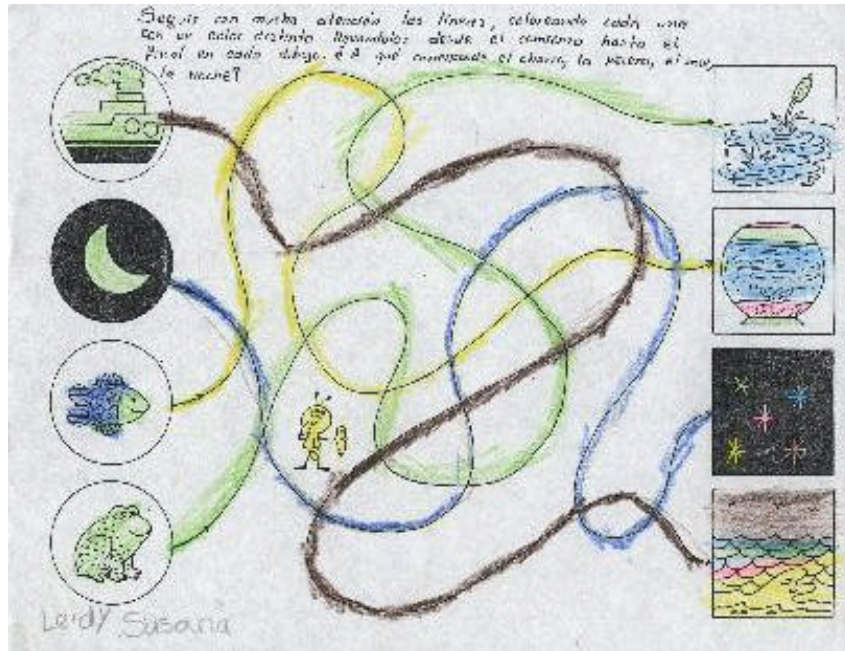 Seguir con mucha atención las líneas, coloreando cada una
con un color distinto llevandolas desde el comienzo hasta el
final en cada dibujo. ¿A qué corresponde el charco, la pecera, el mar
la noche?
Leidy Susana